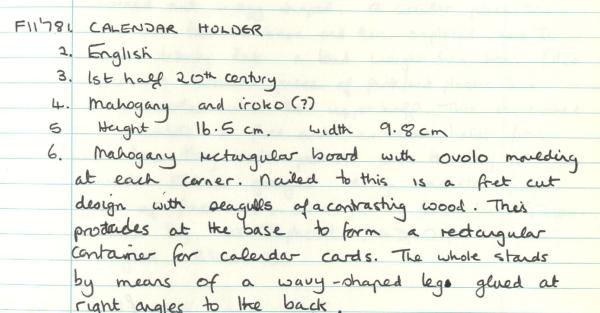 F11'78 1. CALENDAR HOLDER
2. English
3. 1st half 20th century
4. Mahogany and iroko (?)
5 Height 16.5 cm. width 9.8cm
6. Mahogany rectangular board with ovolo moulding
at each corner. Nailed to this is a fret cut
design with seagulls of a contrasting wood. This
protudes at the base to form a rectangular
container for calendar cards. The whole stands
by means of a wavy-shaped leg glued at
right angles to the back.